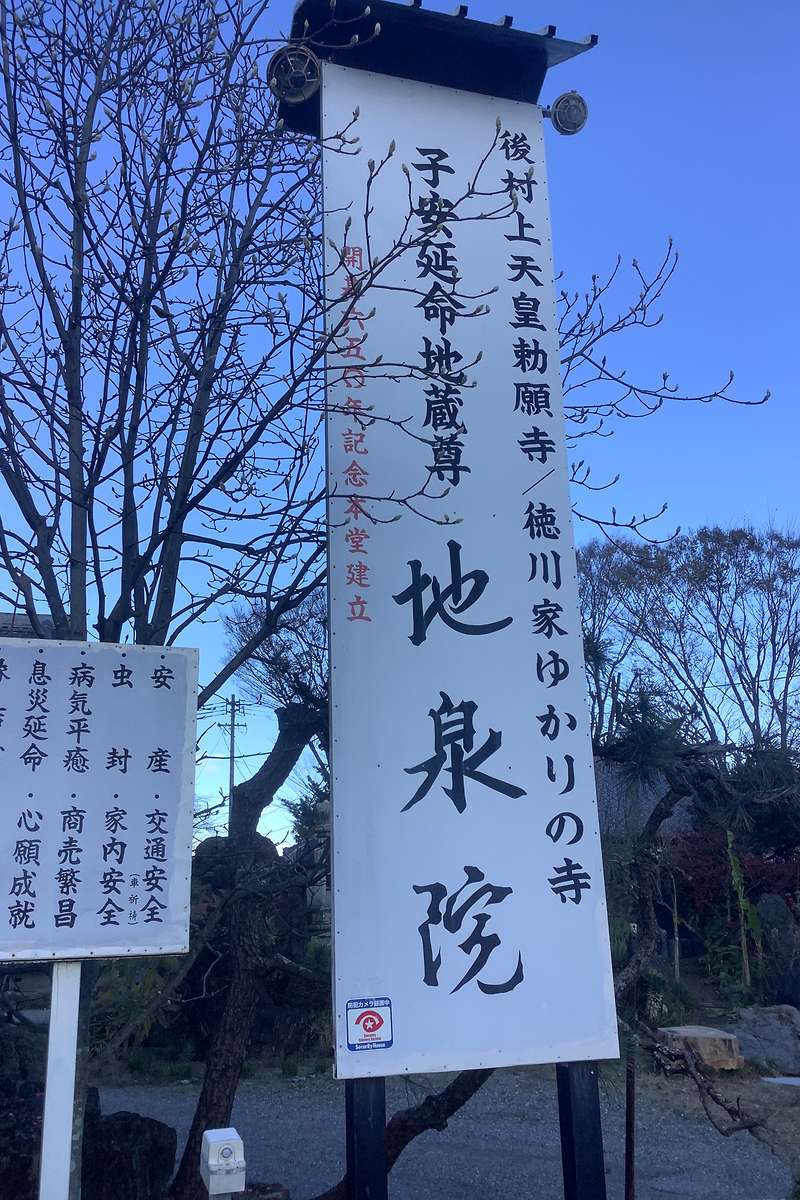 後村上天皇勅願寺/徳川家ゆかりの寺
子安延命地蔵尊
地泉院
開基六五〇年記念本堂建立
防犯カメラ録画中
Security House
安産・交通安全
(車祈祷)
虫封・家内安全
病気平癒・商売繁昌
息災延命・心願成就